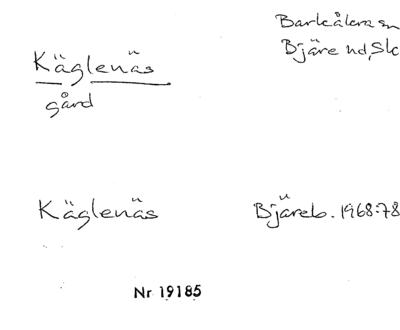 Barkåkra sn
Bjäre hd, Sk
Käglenäs
gård
Käglenäs
Bjäreb. 1968:78
Nr 19185